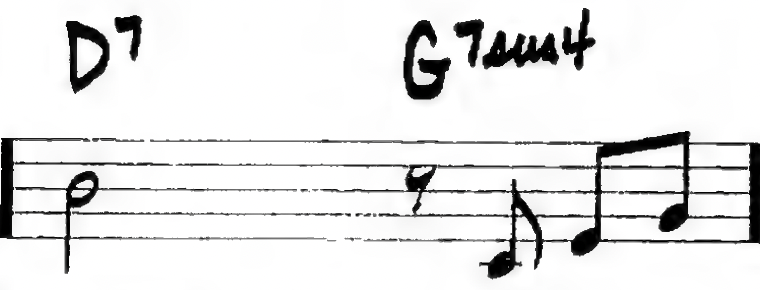 D7 G7sus4